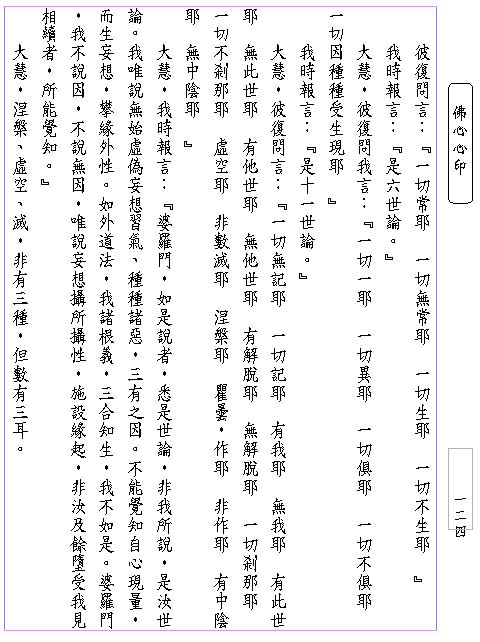 佛心心印
彼復問言：『一切常耶　一切無常耶　一切生耶　一切不生耶　』
我時報言：『是六世論。』
大慧，彼復問我言：『一切一耶　一切異耶　一切俱耶　一切不俱耶
一切因種種受生現耶　』
我時報言：『是十一世論。』
大慧，彼復問言：『一切無記耶　一切記耶　有我耶　無我耶　有此世
耶　無此世耶　有他世耶　無他世耶　有解脫耶　無解脫耶　一切剎那耶
一切不剎那耶　虛空耶　非數滅耶　涅槃耶　瞿曇，作耶　非作耶　有中陰
耶　無中陰耶　』
大慧，我時報言：『婆羅門，如是說者，悉是世論，非我所說，是汝世
論。我唯說無始虛偽妄想習氣、種種諸惡，三有之因。不能覺知自心現量，
而生妄想，攀緣外性。如外道法，我諸根義，三合知生，我不如是。婆羅門
，我不說因，不說無因，唯說妄想攝所攝性，施設緣起，非汝及餘墮受我見
相續者，所能覺知。』
大慧，涅槃、虛空、滅，非有三種，但數有三耳。
一二四